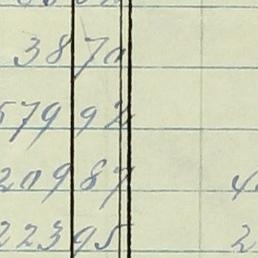 3870
57992
20987 4
22395 2